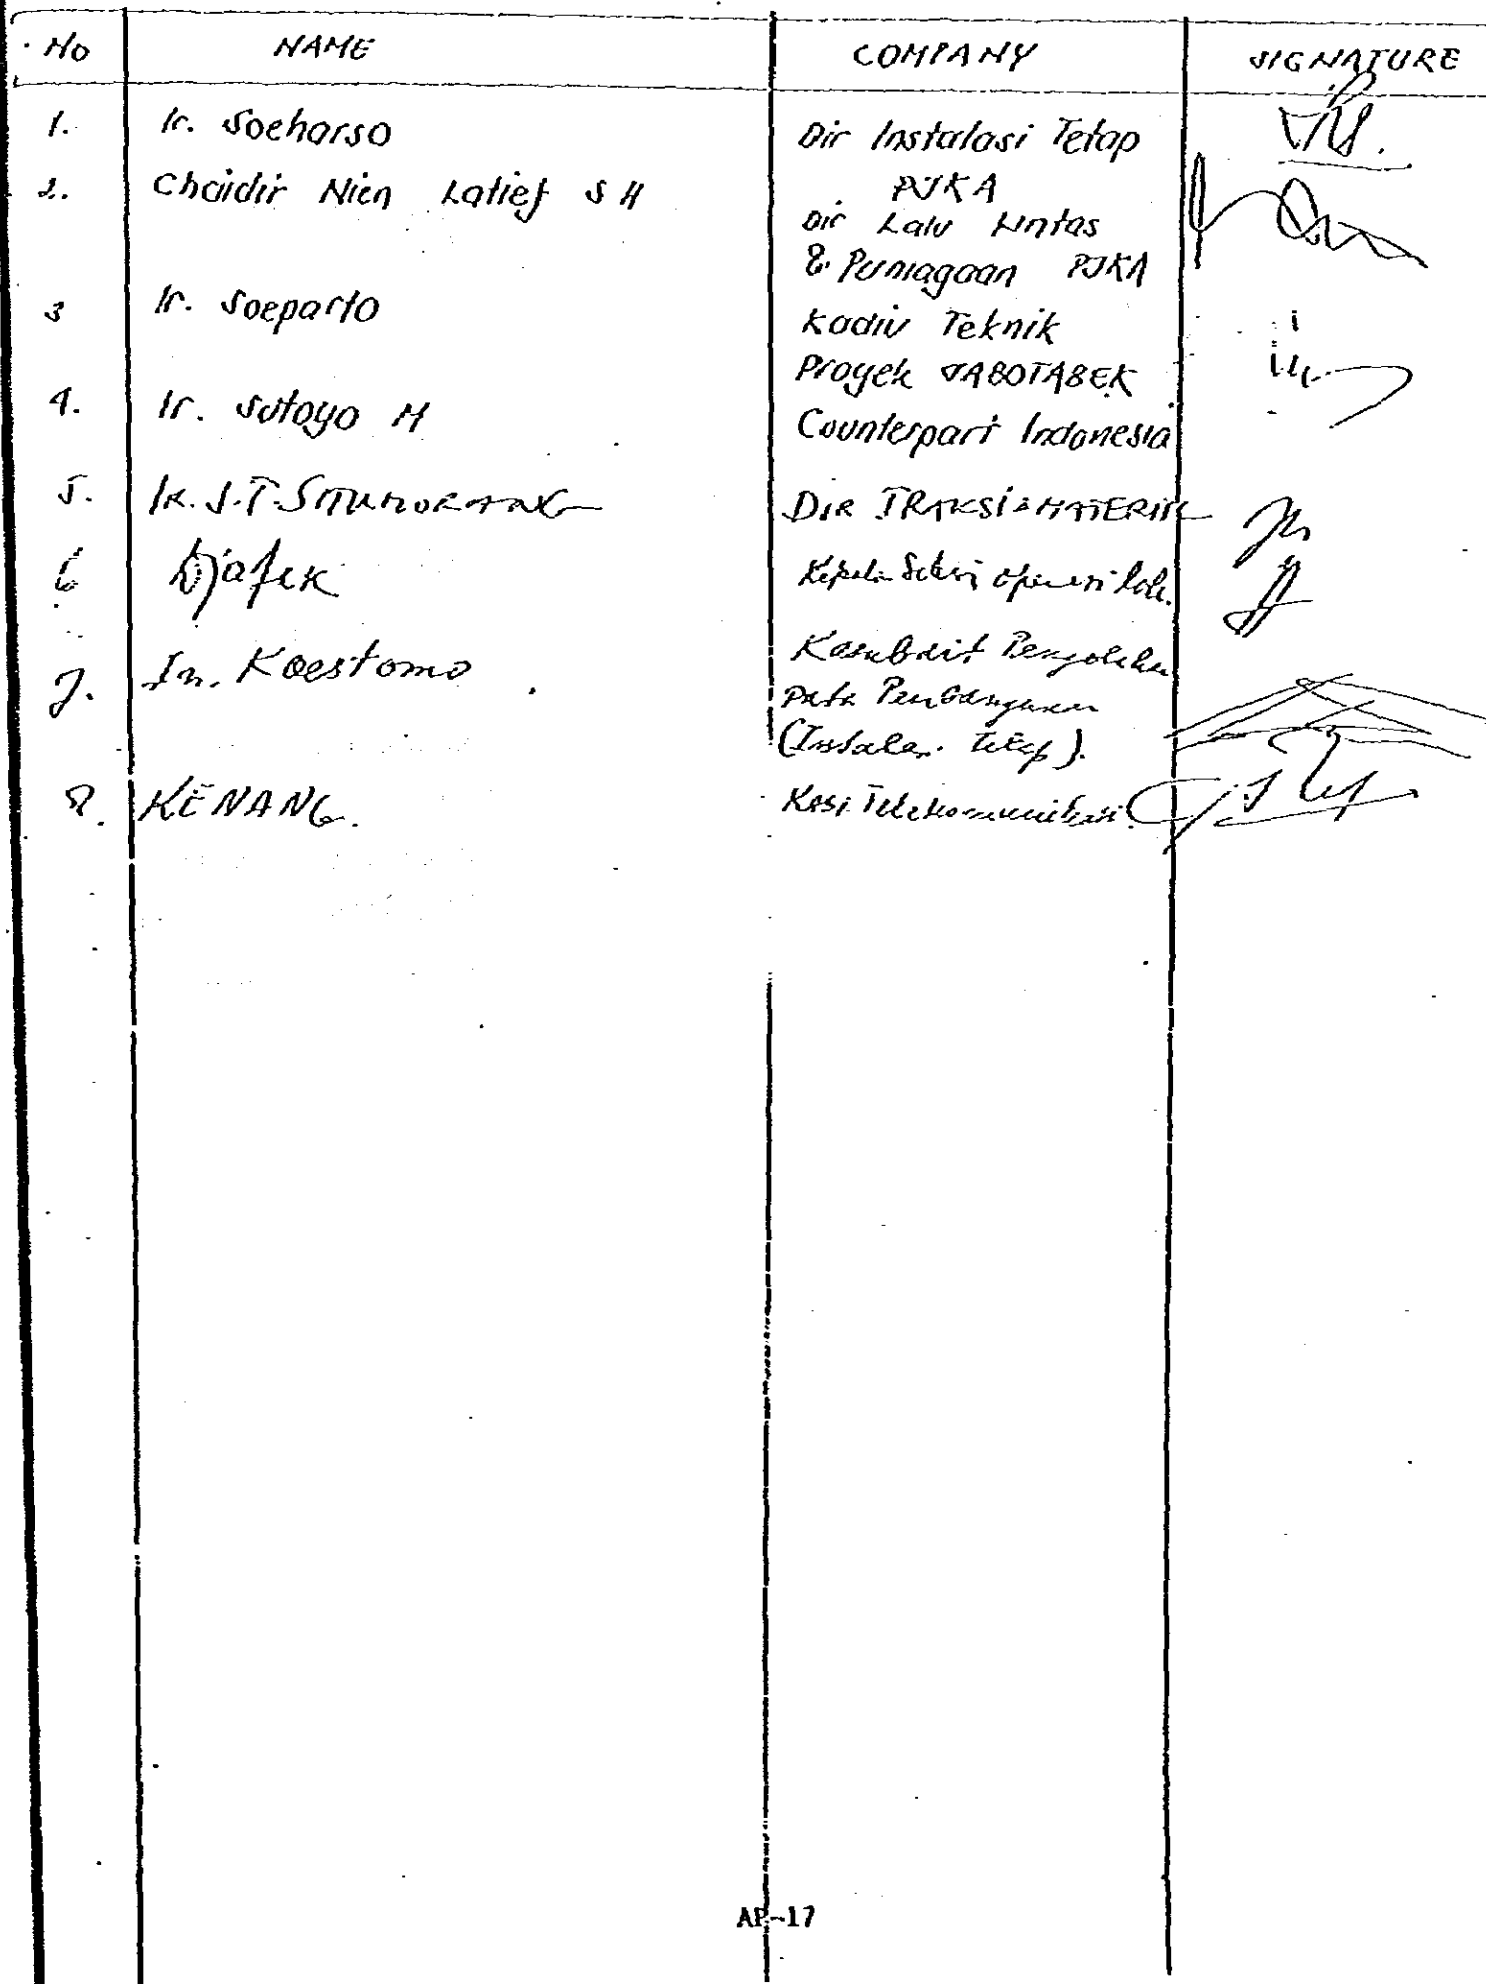 NO NAME COMPANY SIGNATURE
1. Ir. Soeharso Dir Instalasi Tetap
PJKA
2. Chaidir Nien Latief S H Dir Lalu Lintas
& Perniagaan PJKA
3 Ir. Soeparto Kadiv Teknik
Proyek JABOTABEK
4. Ir. Sutoyo H Counterpart Indonesia
5. IR. S.T. SITUMORANG DIR TRAKSI & MATERIIL
6 Djafek Kepala Seksi operasi
7. Ir. Koestomo Kasubdit Pengolahan
Data Pembangunan
(Instalasi tetap).
8. KENANG. Kasi Telekomunikasi.
AP-17